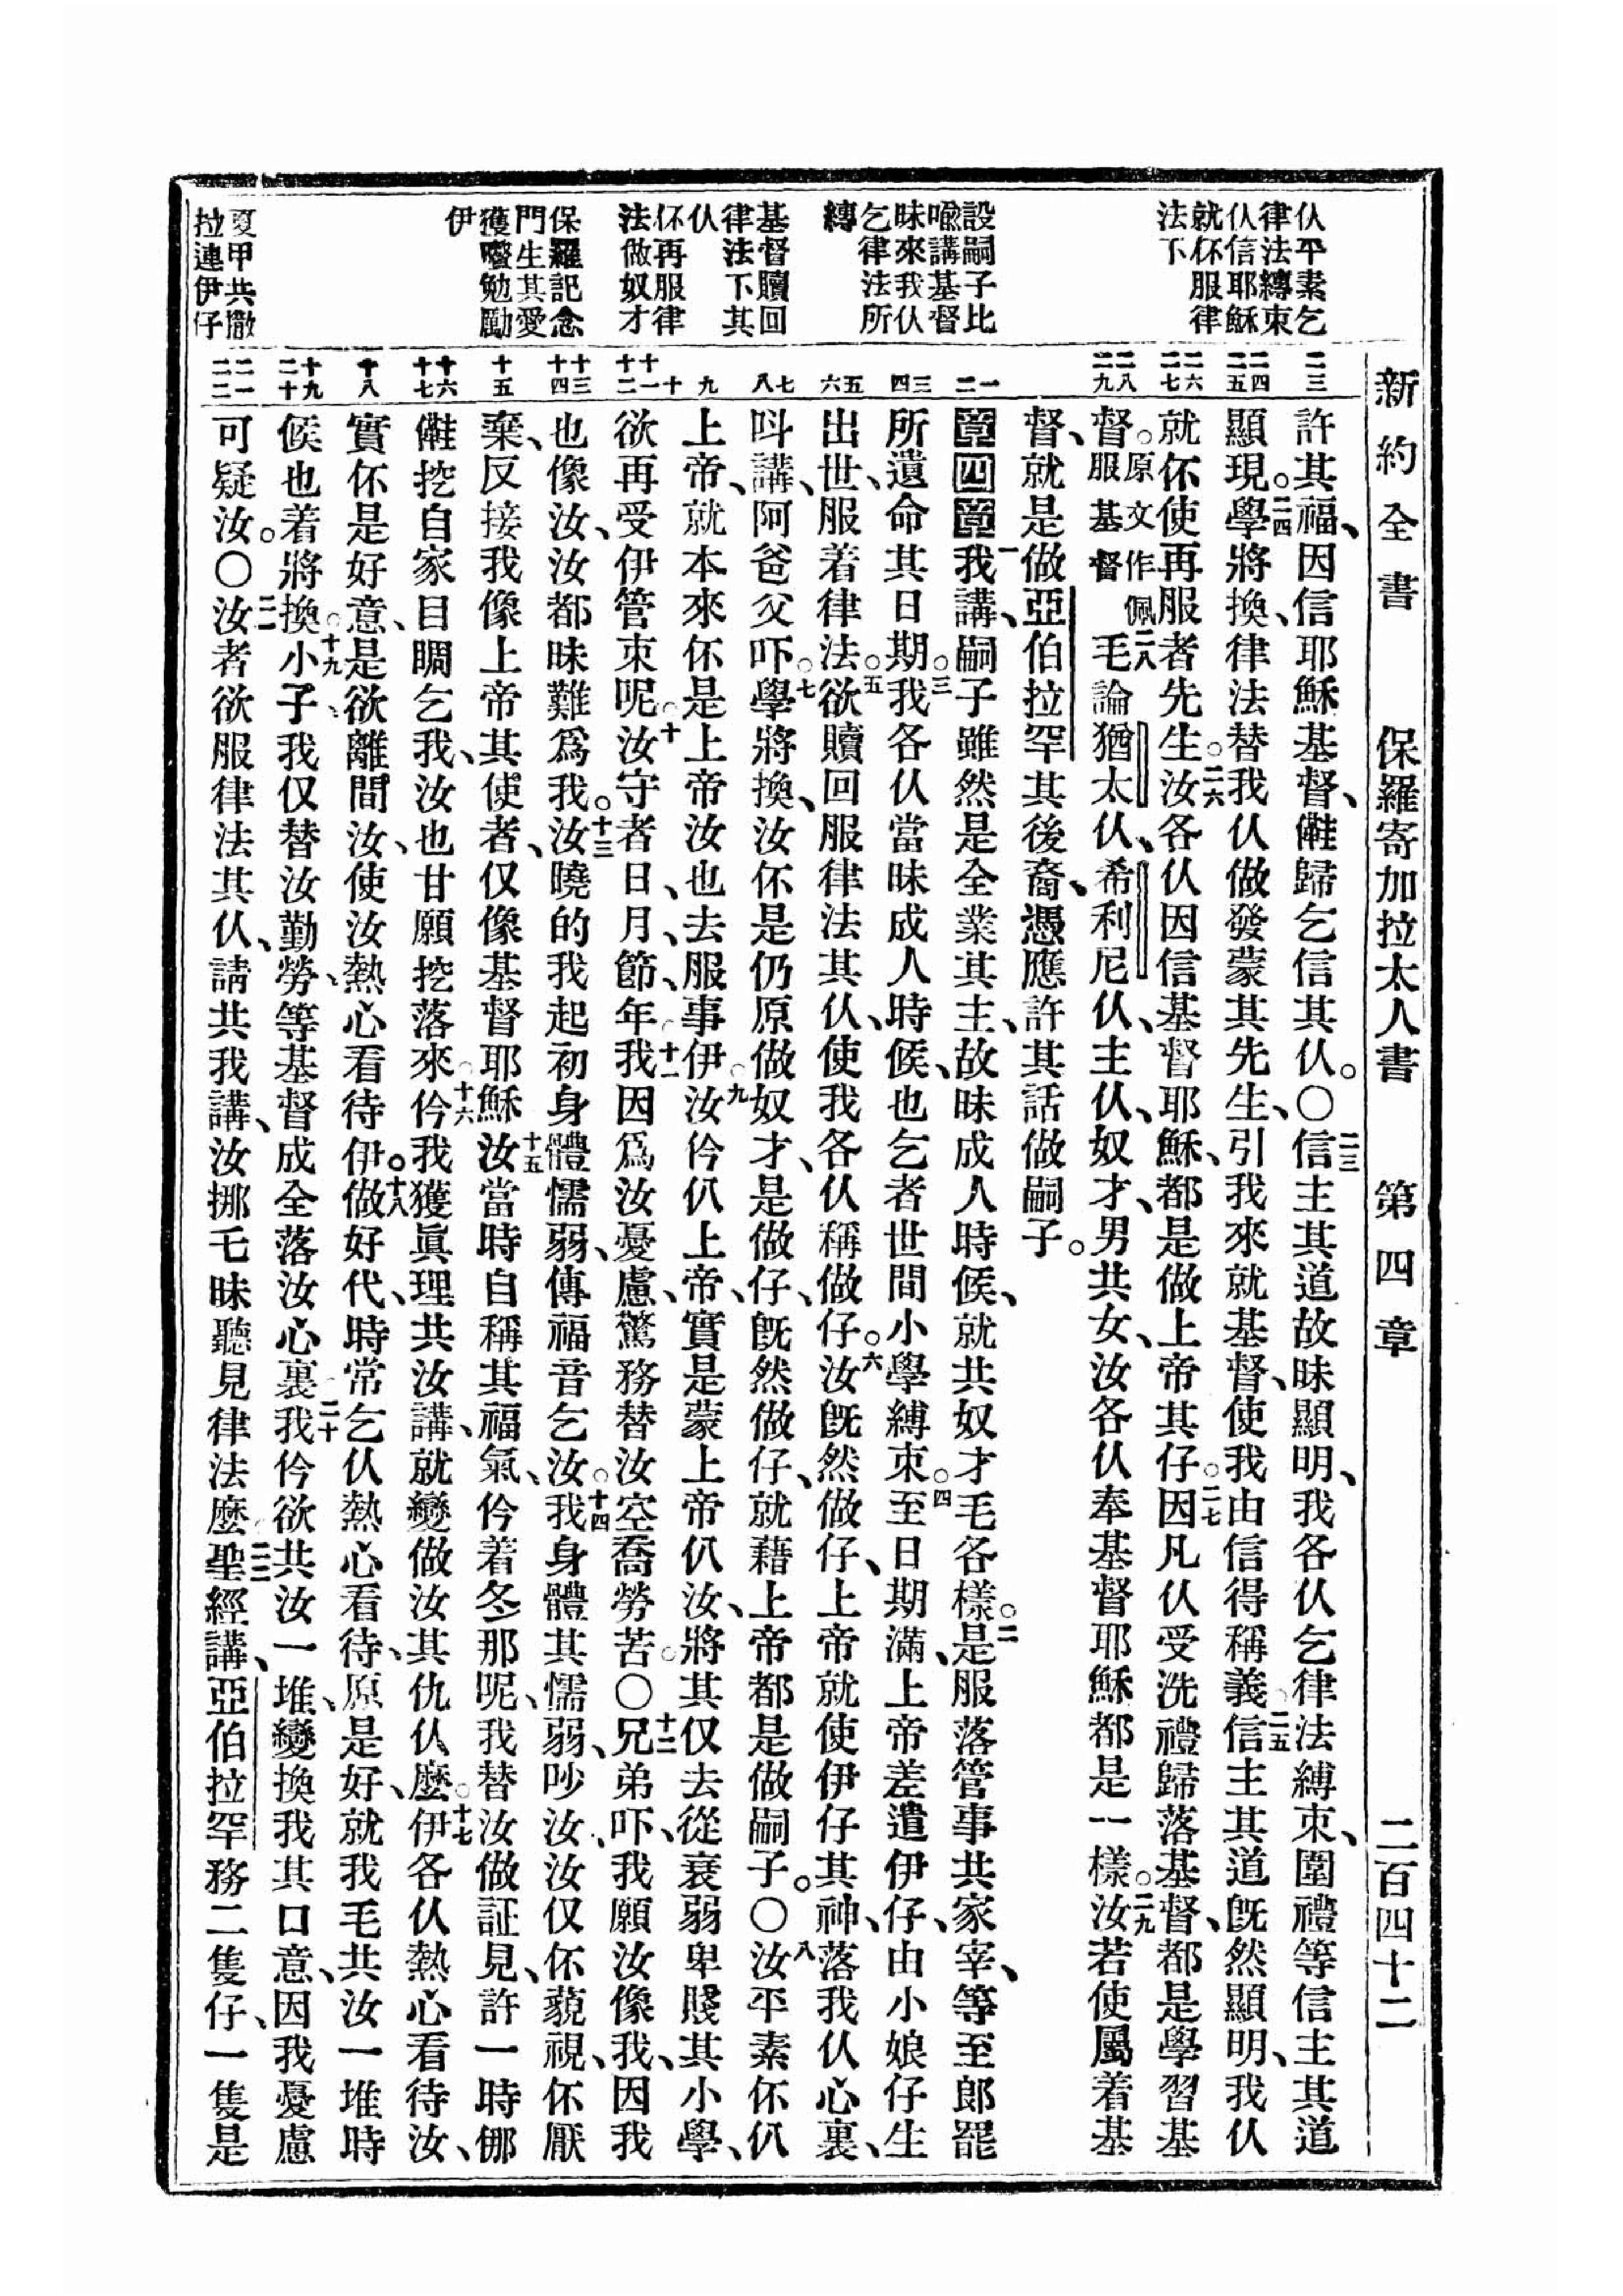 新約全書　保羅寄加拉太人書　第四章　二百四十二
仈平素乞
律法縛束
仈信耶穌
就伓服律
法下
設嗣子比
喩講基督
昧來我仈
乞律法所
縛
基督贖回
律法下其
仈
伓再服律
法做奴才
保羅記念
門生其愛
獲囑勉勵
伊
夏甲共撒
拉連伊仔
許其福、因信耶穌基督、儺歸乞信其仈。〇二三信主其道故昧顯明、我各仈乞律法縛束、圍禮等信主其道
顯現。二四學將換、律法替我仈做發蒙其先生、引我來就基督、使我由信得稱義。二五信主其道旣然顯明、我仈
就伓使再服者先生。二六汝各仈因信基督耶穌、都是做上帝其仔。二七因凡仈受洗禮歸落基督、都是學習基
督。原文作佩服基督二八毛論猶太仈、希利尼仈、主仈、奴才、男共女、汝各仈奉基督耶穌都是一樣。二九汝若使屬着基
督、就是做亞伯拉罕其後裔、憑應許其話做嗣子。
第四章一我講、嗣子雖然是全業其主、故昧成人時候、就共奴才毛各樣。二是服落管事共家宰、等至郎罷
所遺命其日期。三我各仈當昧成人時候、也乞者世間小學縛束。四至日期滿、上帝差遣伊仔、由小娘仔生
出世、服着律法。五欲贖回服律法其仈、使我各仈稱做仔。六汝旣然做仔、上帝就使伊仔其神、落我仈心裏、
呌講、阿爸父吓。七學將換、汝伓是仍原做奴才、是做仔、旣然做仔、就藉上帝都是做嗣子。〇八汝平素伓仈
上帝、就本來伓是上帝汝也去服事伊。九汝仱仈上帝、實是蒙上帝仈汝、將其仅去從衰弱卑賤其小學、
欲再受伊管束呢。十汝守者日、月、節、年。十一我因爲汝憂慮、驚務替汝空喬勞苦。〇十二兄弟吓、我願汝像我、因我
也像汝、汝都昧難爲我。十三汝曉的我起初身體懦弱、傳福音乞汝。十四我身體其懦弱、吵汝、汝仅伓藐視、伓厭
棄、反接我像上帝其使者、仅像基督耶穌。十五汝當時自稱其福氣、仱着冬那呢、我替汝做証見、許一時㑚
儺挖自家目睭乞我、汝也甘願挖落來。十六仱我獲眞理共汝講、就變做汝其仇仈麽。十七伊各仈熱心看待汝、
實伓是好意、是欲離間汝、使汝熱心看待伊。十八做好代、時常乞仈熱心看待、原是好、就我毛共汝一堆時
候也着將換。十九小子、我仅替汝勤勞、等基督成全落汝心裏。二十我仱欲共汝一堆、變換我其口意、因我憂慮
可疑汝。〇二一汝者欲服律法其仈、請共我講、汝挪乇昧聽見律法麽。二二聖經講、亞伯拉罕務二隻仔、一隻是